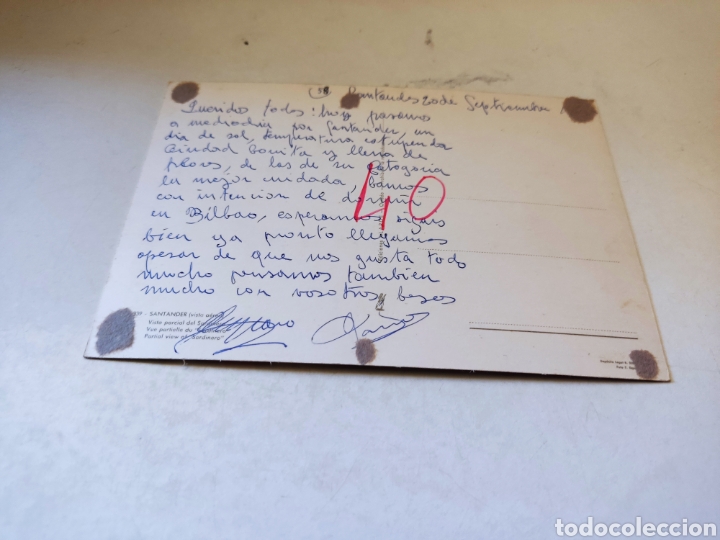 Santander 20 de Septiembre
Queridos todos: hoy pasamos
a mediodia por Santander, un
dia de sol, temperatura estupenda
Ciudad bonita y llena de
flores, de las de su categoria
la mejor cuidada, vamos
con intencion de dormir
en Bilbao, esperamos sigais
bien ya pronto llegamos
apesar de que nos gusta todo
mucho pensamos tambien
mucho con vosotros besos
40
SANTANDER (vista aérea)
Vista parcial del Sardinero
Vue partielle du "Sardinero"
Partial view of "Sardinero"
todocoleccion